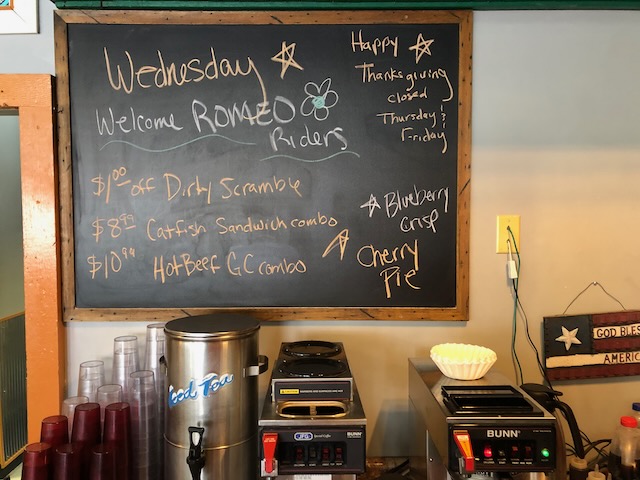 Wednesday
Welcome ROMEO
Riders
$1.00 off Dirty Scramble
$8.99 Catfish Sandwich combo
$10.99 Hot Beef GC combo
Happy
Thanksgiving
closed
Thursday &
Friday
Blueberry
Crisp
Cherry
Pie
Iced Tea
BUNN
GOD BLES
AMERIC